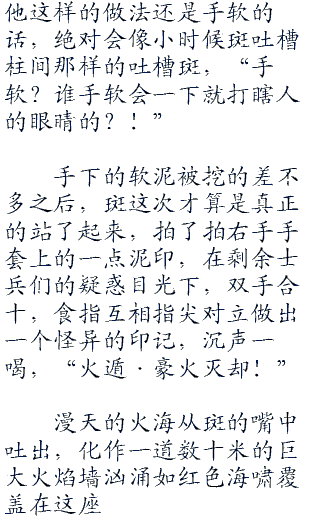 他这样的做法还是手软的
话，绝对会像小时候斑吐槽
柱间那样的吐槽斑，“手
软？谁手软会一下就打瞎人
的眼睛的？！”
　　手下的软泥被挖的差不
多之后，斑这次才算是真正
的站了起来，拍了拍右手手
套上的一点泥印，在剩余士
兵们的疑惑目光下，双手合
十，食指互相指尖对立做出
一个怪异的印记，沉声一
喝，“火遁·豪火灭却！”
　　漫天的火海从斑的嘴中
吐出，化作一道数十米的巨
大火焰墙汹涌如红色海啸覆
盖在这座